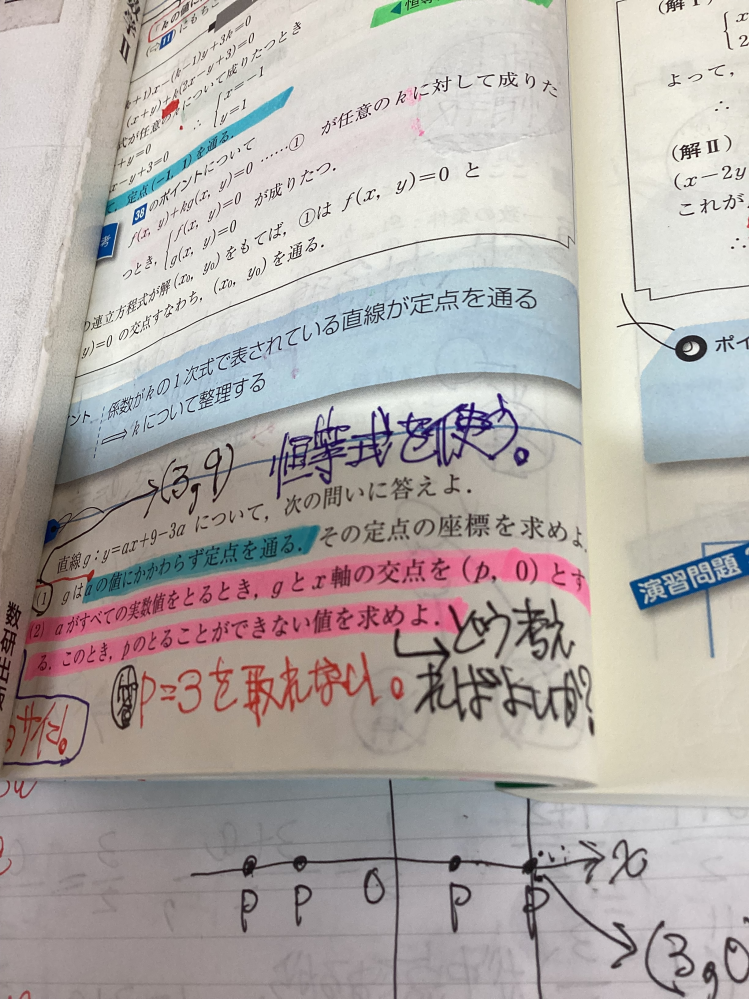 (⇨ 11) にもち
(k+1)x-(k-1)y+3k=0
(x+y)+k(2x-y+3)=0
について成りたつとき
+y=0
x-y+3=0
∴ {x=-1
y=1
定点(-1, 1)を通る.
38 のポイントについて
f(x, y)+kg(x, y)=0 ……① が任意の k に対して成りた
つとき, {f(x, y)=0
g(x, y)=0 が成りたつ.
連立方程式が解(x₀, y₀)をもてば, ①は f(x, y)=0 と
y)=0 の交点すなわち, (x₀, y₀)を通る.
係数が k の1次式で表されている直線が定点を通る
⟹ k について整理する
(3, 9) 恒等式を使う。
直線 g : y=ax+9-3a について, 次の問いに答えよ.
(1) g は a の値にかかわらず定点を通る. その定点の座標を求めよ.
(2) a がすべての実数値をとるとき, g と x 軸の交点を (p, 0) とす
る. このとき, p のとることができない値を求めよ.
どう考え
ればよいか?
答 P=3を取れない。
数研出版
(解Ⅱ)
(x-2y
これが
∴
よって,
∴
ポイ
演習問題
P P O P P x
(3, 0